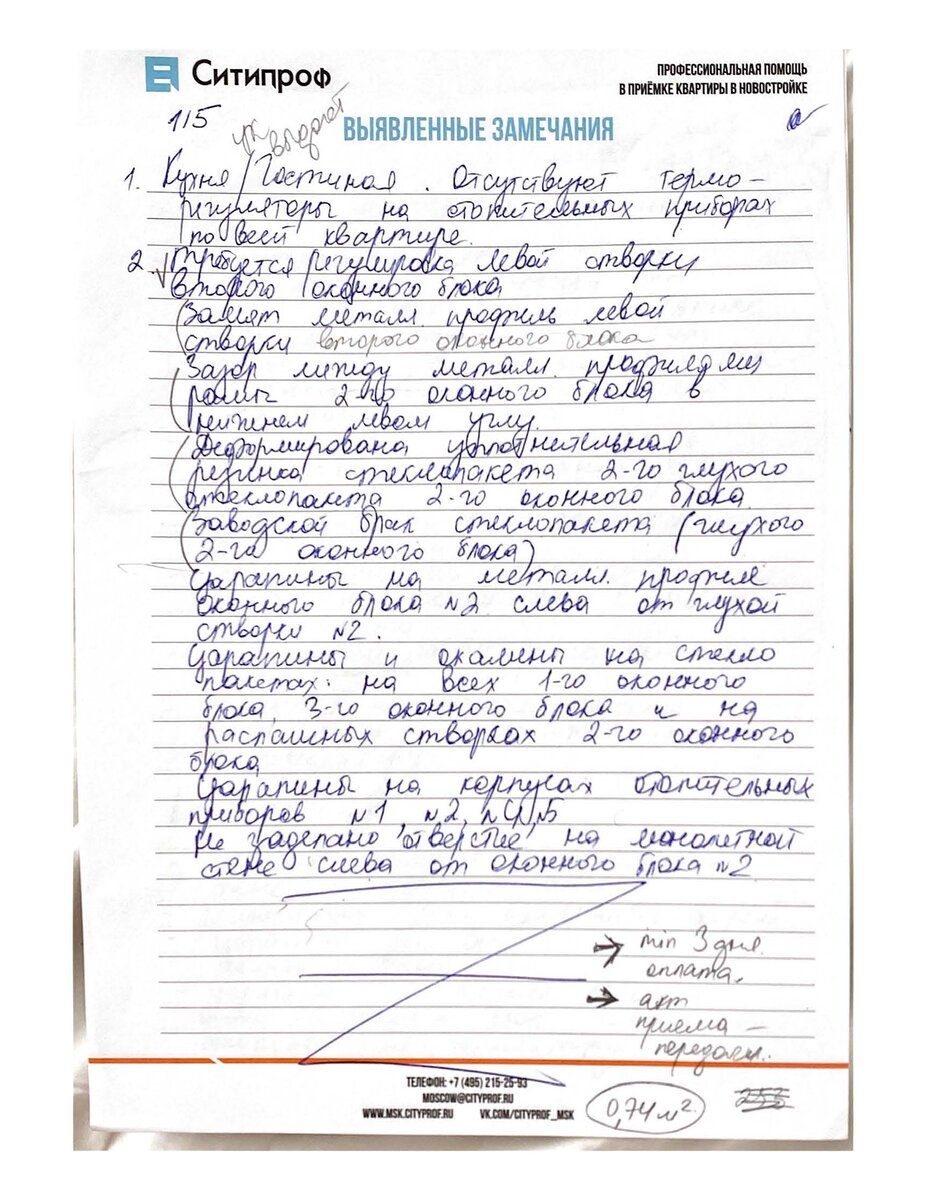 Ситипроф
ПРОФЕССИОНАЛЬНАЯ ПОМОЩЬ
В ПРИЁМКЕ КВАРТИРЫ В НОВОСТРОЙКЕ
1/5
ук выдает
ВЫЯВЛЕННЫЕ ЗАМЕЧАНИЯ
1. Кухня/Гостиная. Отсутствуют термо-
регуляторы на отопительных приборах
по всей квартире.
2. Требуется регулировка левой створки
второго оконного блока
Замят металл. профиль левой
створки второго оконного блока
Зазор между металл. профилями
рамы 2-го оконного блока в
нижнем левом углу.
Деформирована уплотнительная
резинка стеклопакета 2-го глухого
стеклопакета 2-го оконного блока
Заводской брак стеклопакета (глухого
2-го оконного блока)
Царапины на металл. профиле
оконного блока №2 слева от глухой
створки №2.
Царапины и окалины на стекло
пакетах: на всех 1-го оконного
блока, 3-го оконного блока и на
распашных створках 2-го оконного
блока
Царапины на корпусах отопительных
приборов №1, №2, №4, №5
Не заделано отверстие на монолитной
стене слева от оконного блока №2
→ min 3 дня
оплата.
→ акт
приема -
передачи.
ТЕЛЕФОН: +7 (495) 215-25-93
MOSCOW@CITYPROF.RU
WWW.MSK.CITYPROF.RU VK.COM/CITYPROF_MSK
0,74 м².